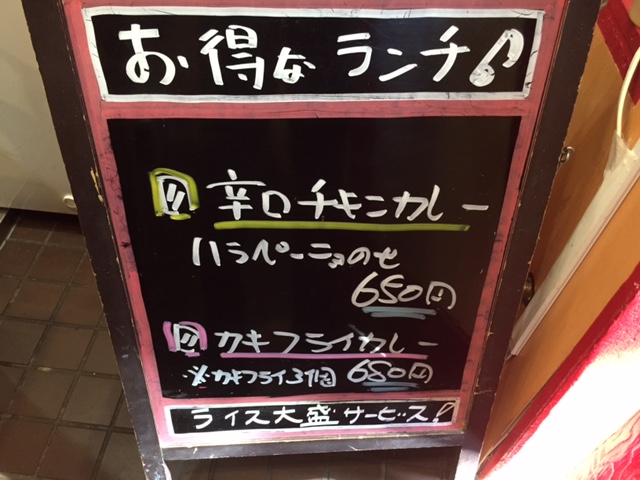 お得なランチ♪
辛口チキンカレー
ハラペーニョのせ
650円
カキフライカレー
※カキフライ3個 680円
ライス大盛サービス!